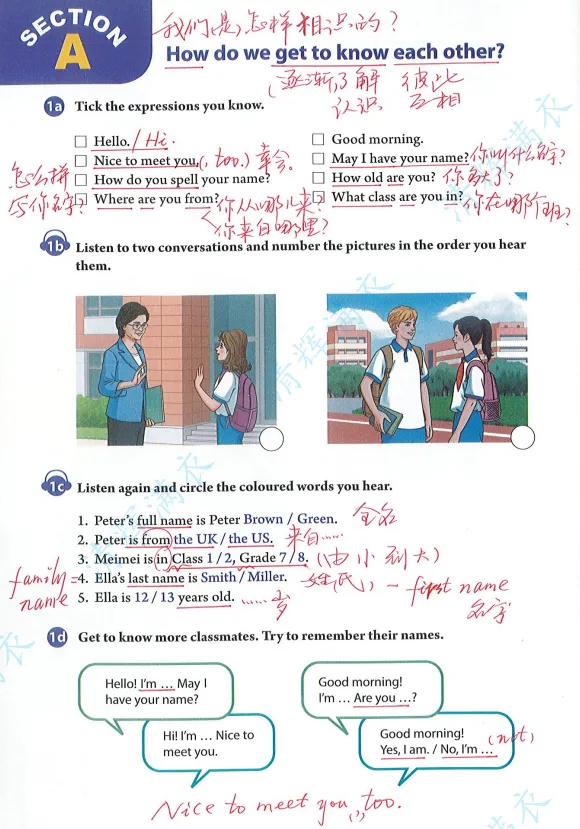 SECTION A
我们是怎样相识的？
How do we get to know each other?
逐渐了解 彼此
认识 互相
1a Tick the expressions you know.
Hello. / Hi.
Good morning.
Nice to meet you. (, too.)幸会。
May I have your name? 你叫什么名字？
怎么拼
How do you spell your name?
How old are you? 你多大了？
写你名字？
Where are you from? 你从哪儿来？
What class are you in? 你在哪个班？
你来自哪里？
1b Listen to two conversations and number the pictures in the order you hear
them.
1c Listen again and circle the coloured words you hear.
1. Peter's full name is Peter Brown / Green. 全名
2. Peter is from the UK / the US. 来自……
3. Meimei is in Class 1 / 2, Grade 7 / 8. (由小到大)
family name
4. Ella's last name is Smith / Miller. 姓氏 — first name
名字
5. Ella is 12 / 13 years old. ……岁
1d Get to know more classmates. Try to remember their names.
Hello! I'm … May I
have your name?
Hi! I'm … Nice to
meet you.
Good morning!
I'm … Are you …?
Good morning!
(not)
Yes, I am. / No, I'm …
Nice to meet you (,) too.
清辉满衣